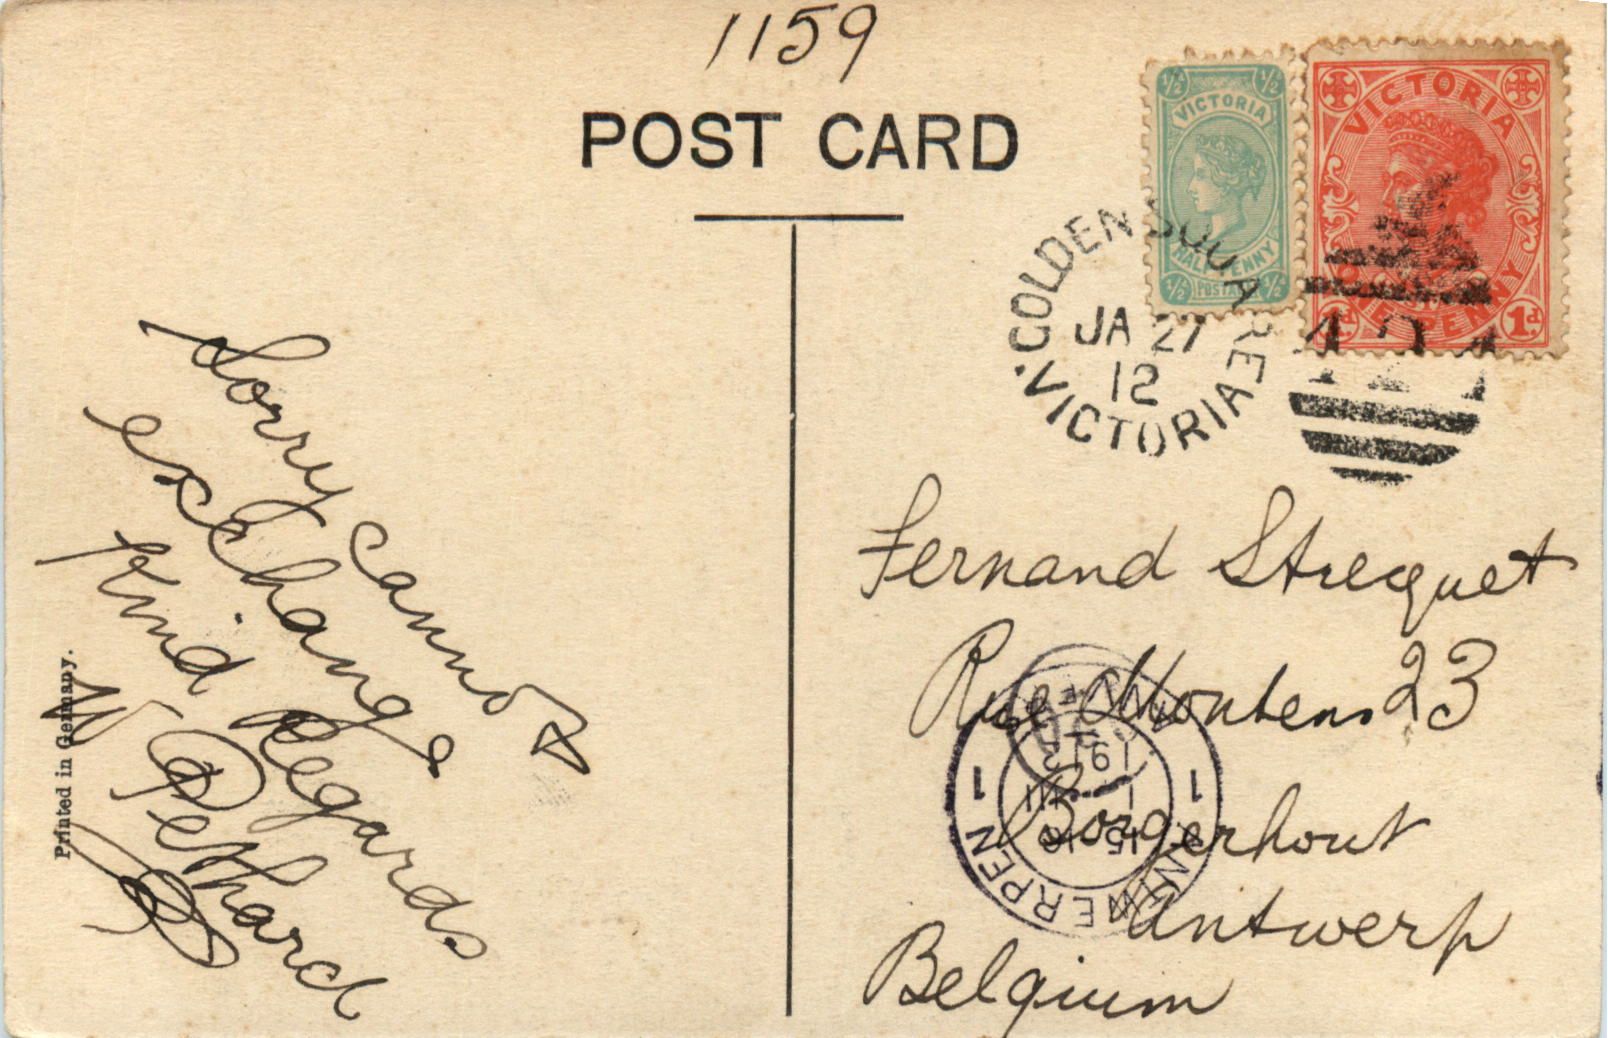 1159
POST CARD
½ ½
VICTORIA
HALF PENNY
½ POSTAGE ½
VICTORIA
ONE PENNY
1d 1d
GOLDEN SQUARE
JA 27
12
VICTORIA
Sorry cannot
exchange
Kind Regards
W Pethard
Printed in Germany.
Fernand Strecquet
Rue Montens 23
Borgerhout
Antwerp
Belgium
1 ANTWERPEN 1
15-16
1912
ANVERS